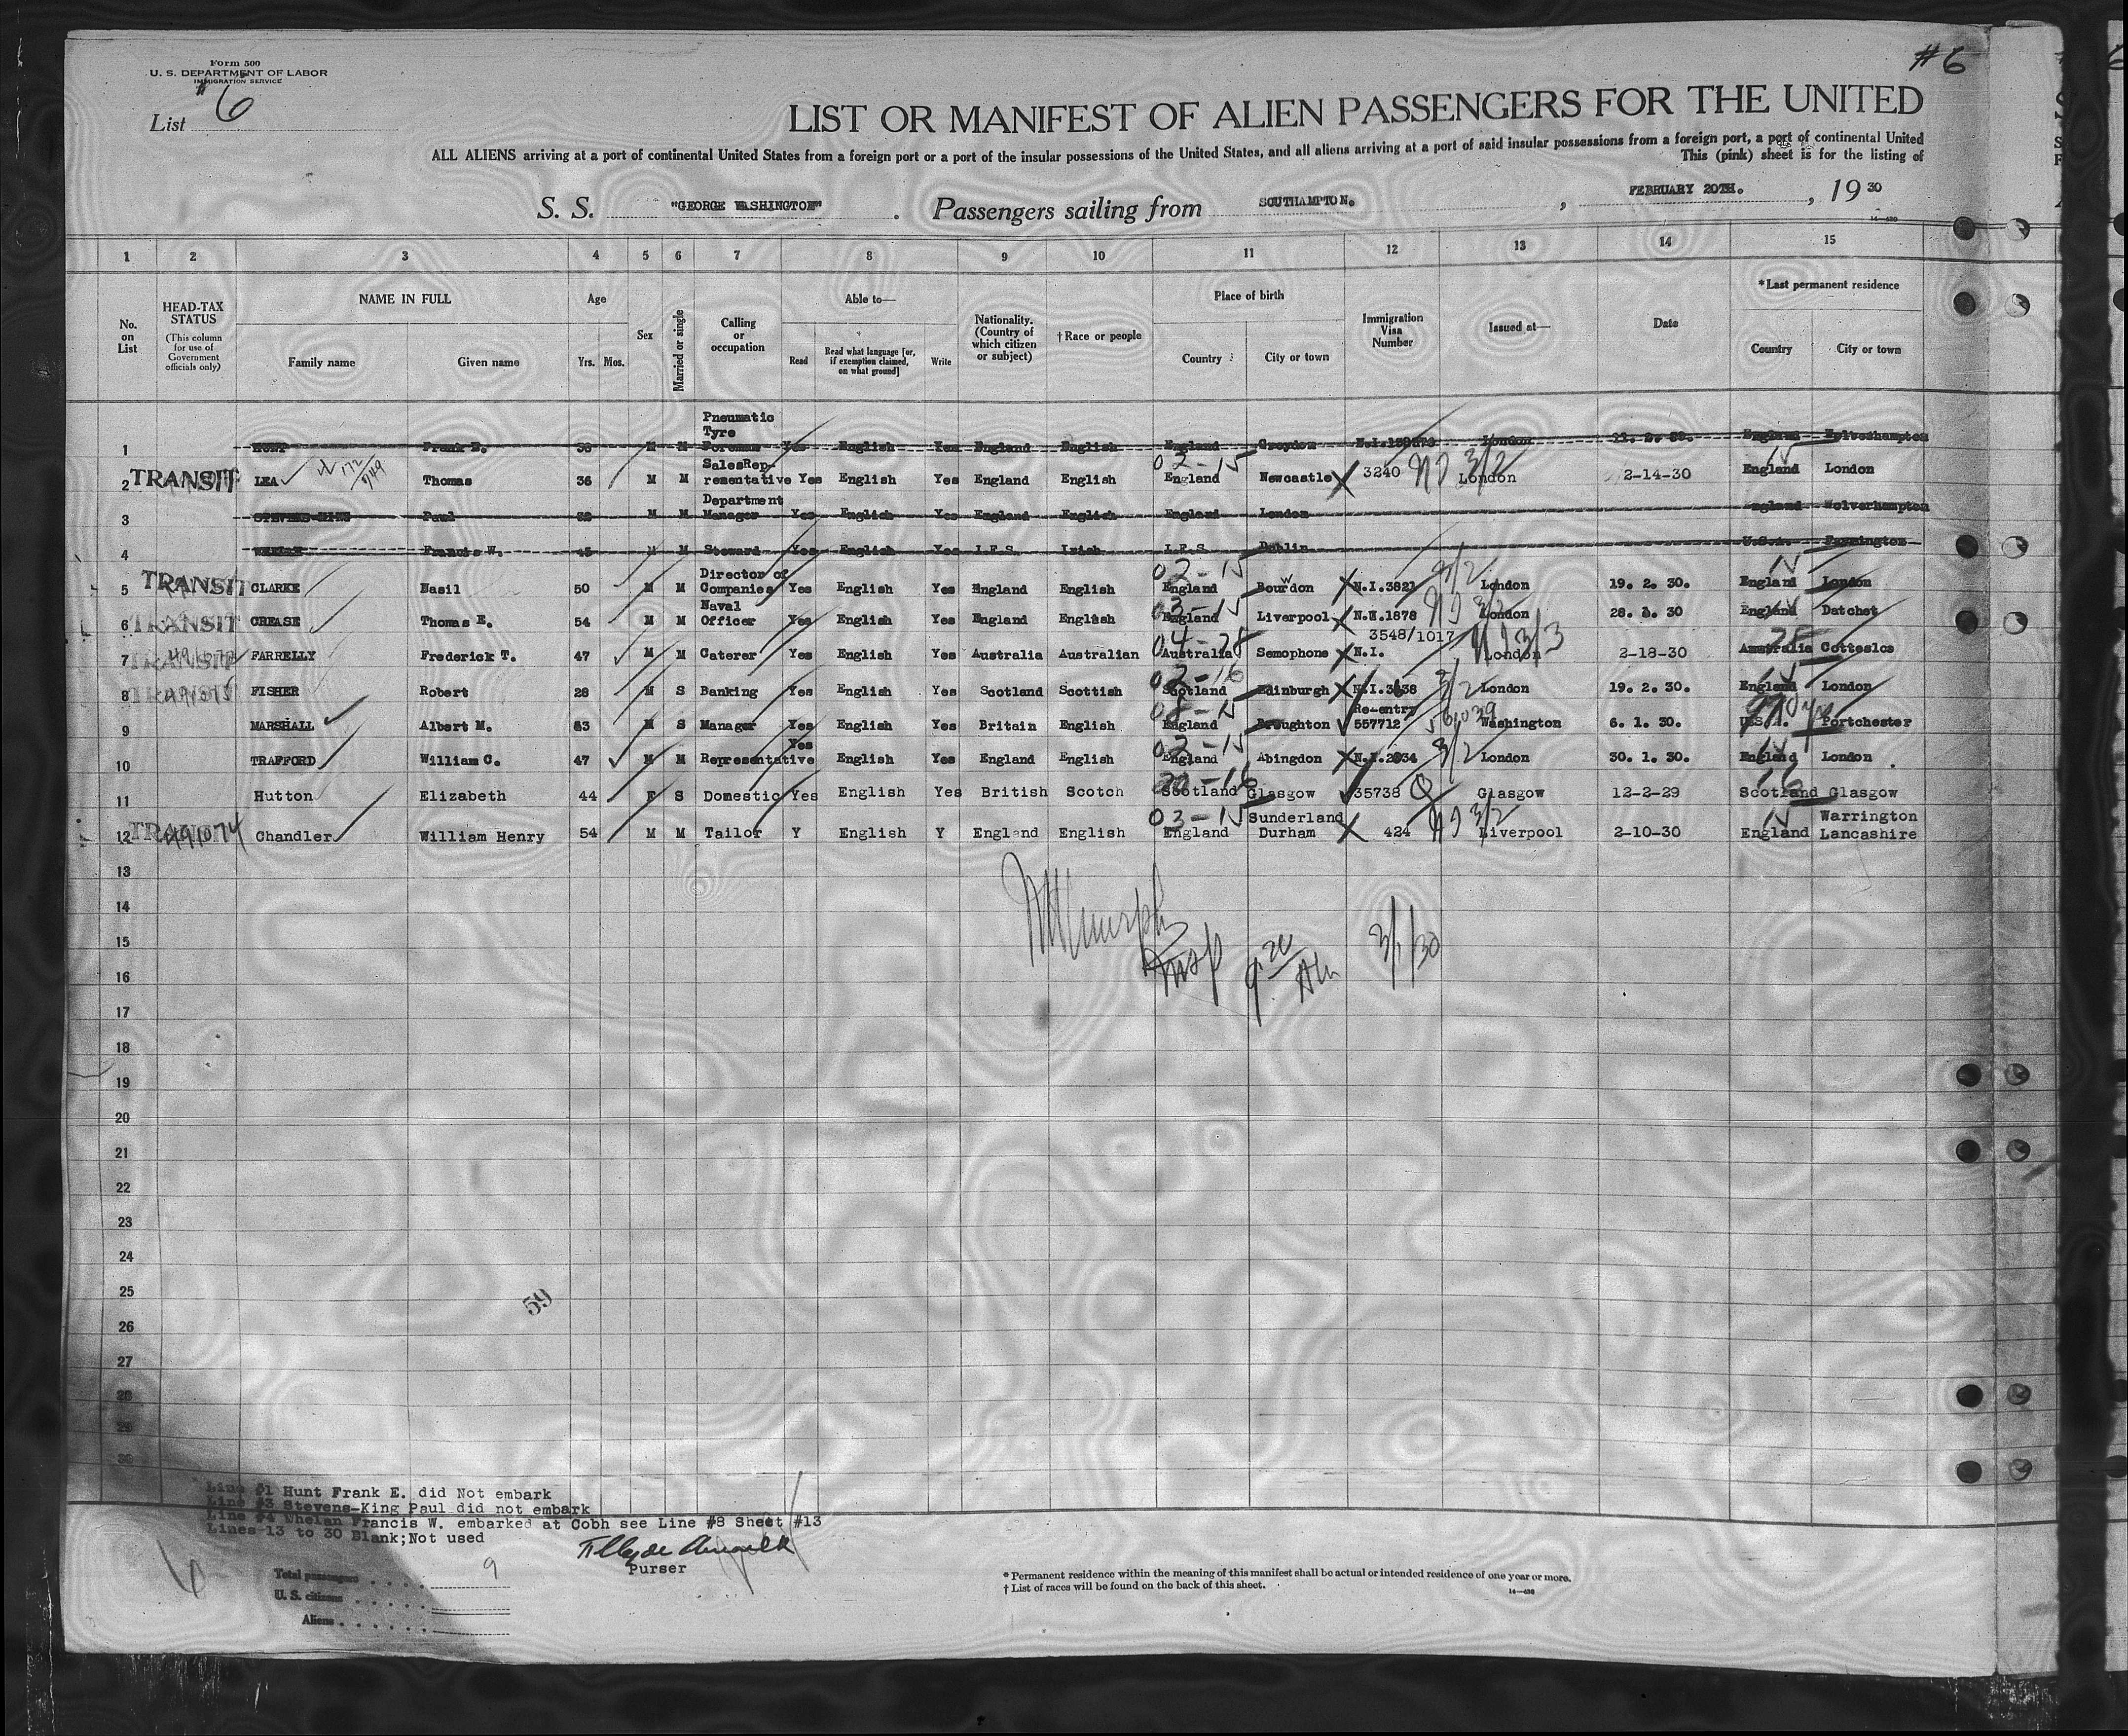 Form 500
U. S. DEPARTMENT OF LABOR
IMMIGRATION SERVICE
#6
List #6
LIST OR MANIFEST OF ALIEN PASSENGERS FOR THE UNITED
ALL ALIENS arriving at a port of continental United States from a foreign port or a port of the insular possessions of the United States, and all aliens arriving at a port of said insular possessions from a foreign port, a port of continental United
This (pink) sheet is for the listing of
S. S. "GEORGE WASHINGTON" . Passengers sailing from SOUTHAMPTON. , FEBRUARY 20TH. , 19 30
14—430
1 2 3 4 5 6 7 8 9 10 11 12 13 14 15
No. on List
HEAD-TAX STATUS
(This column for use of Government officials only)
NAME IN FULL
Family name Given name
Age
Yrs. Mos.
Sex
Married or single
Calling or occupation
Able to—
Read Read what language [or, if exemption claimed, on what ground] Write
Nationality. (Country of which citizen or subject)
†Race or people
Place of birth
Country City or town
Immigration Visa Number
Issued at—
Date
*Last permanent residence
Country City or town
1 HUNT Frank E. 38 M M Pneumatic Tyre Foreman Yes English Yes England English England Croydon London England Wolverhampton
2 TRANSIT LEA Thomas 36 M M SalesRep-rementative Yes English Yes England English 02-15 England Newcastle 3240 3/2 London 2-14-30 15 England London
3 STEVENS-KING Paul 32 M M Department Manager Yes English Yes England English England London England Wolverhampton
4 WHELAN Francis W. 45 M M Steward Yes English Yes I.F.S. Irish I.F.S. Dublin U.S.A.
5 TRANSIT CLARKE Basil 50 M M Director of Companies Yes English Yes England English 02-15 England Bourdon w N.I.3821 3/2 London 19. 2. 30. 15 England London
6 TRANSIT CREASE Thomas E. 54 M M Naval Officer Yes English Yes England English 03-15 England Liverpool 1878 London 30 England Datchet
7 TRANSIT FARRELLY Frederick T. 47 M M Caterer Yes English Yes Australia Australian 04-28 Australia Semophone 3548/1017 N.I. 3/3 London 2-18-30 28 Australia Cottesloe
8 TRANSIT FISHER Robert 28 M S Banking Yes English Yes Scotland Scottish 02-16 Scotland Edinburgh 3/2 London 19. 2. 30. 15 England London
9 MARSHALL Albert M. 53 M S Manager Yes English Yes Britain English 08-15 England Broughton Re-entry 557712 Washington 6. 1. 30. U.S.A. Portchester
10 TRAFFORD William C. 47 M M Representative Yes English Yes England English 02-15 England Abingdon 3/2 London 30. 1. 30. 15 England London
11 Hutton Elizabeth 44 F S Domestic Yes English Yes British Scotch Scotland Glasgow 35738 Q Glasgow 12-2-29 16 Scotland Glasgow
12 TRANSIT Chandler William Henry 54 M M Tailor Y English Y England English 03-15 England Sunderland Durham 424 3/2 Liverpool 2-10-30 15 England Warrington Lancashire
13
14
15
Insp 9 20 AM 3/1/30
16
17
18
19
20
21
22
23
24
25
59
26
27
28
29
30
Line #1 Hunt Frank E. did Not embark
Line #3 Stevens-King Paul did not embark
Line #4 Whelan Francis W. embarked at Cobh see Line #8 Sheet #13
Lines 13 to 30 Blank;Not used
Purser
Total passengers . . . . 9
U. S. citizens . . . .
Aliens . . . .
* Permanent residence within the meaning of this manifest shall be actual or intended residence of one year or more.
† List of races will be found on the back of this sheet.
14—430